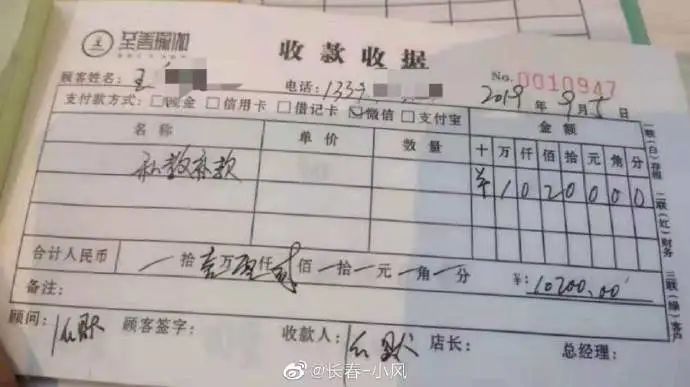 至善瑜伽
收款收据
No.0010947
顾客姓名: 王
电话: 1339
2019年9月5日
支付款方式: □现金 □信用卡 □借记卡 ☑微信 □支付宝
金额
名称 单价 数量 十 万 仟 佰 拾 元 角 分
私教余款 ¥ 1 0 2 0 0 0 0
合计人民币 一拾壹万零仟贰佰一拾一元一角一分 ¥: 10200.00
备注:
顾问: 顾客签字: 收款人: 店长: 总经理:
一联(白)存根 二联(红)财务 三联(绿)客户
@长春-小风